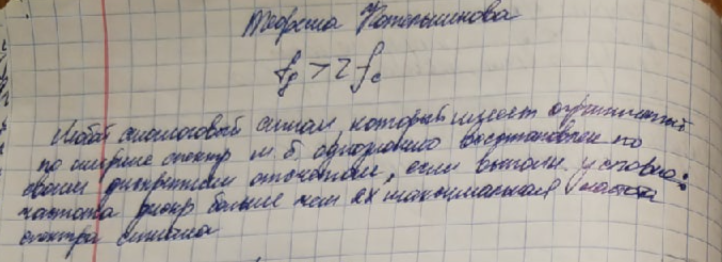 Теорема Котельникова
fg > 2 fc
Любой аналоговый сигнал который имеет ограниченный
по ширине спектр м.б. однозначно восстановлен по
своим дискретным отсчетам, если выполн. условие:
частота дискр больше чем 2х максимальная частота
спектра сигнала